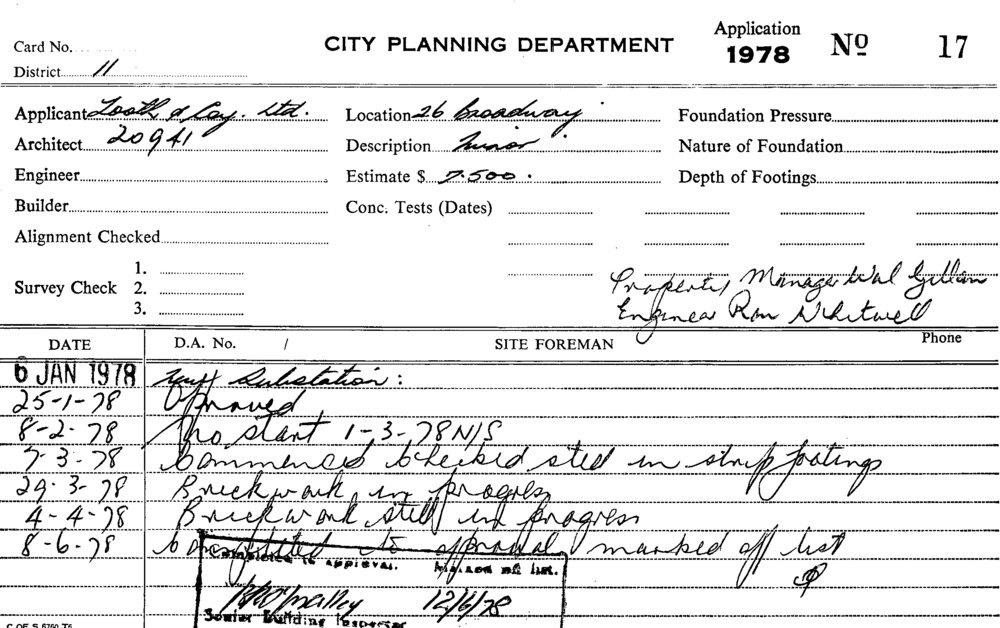 Application
Card No. CITY PLANNING DEPARTMENT 1978 Nº 17
District 11
Applicant Tooth & Coy. Ltd. Location 26 Broadway Foundation Pressure
Architect 20941 Description Minor Nature of Foundation
Engineer Estimate $ 7.500. Depth of Footings
Builder Conc. Tests (Dates)
Alignment Checked
1.
Survey Check 2. Property Manager Wal
3. Engineer Ron Whitwell
DATE D.A. No. / SITE FOREMAN Phone
6 JAN 1978 Substation:
25-1-78 Aproved
8-2-78 No start 1-3-78 N/S
7-3-78 Commenced checked steel in strip footings
29-3-78 Brickwork in progress
4-4-78 Brickwork still in progress
8-6-78 Completed to approval marked off list
Completed to approval. Marked off list.
12/6/78
Senior Building Inspector
C OF S 5760 T5